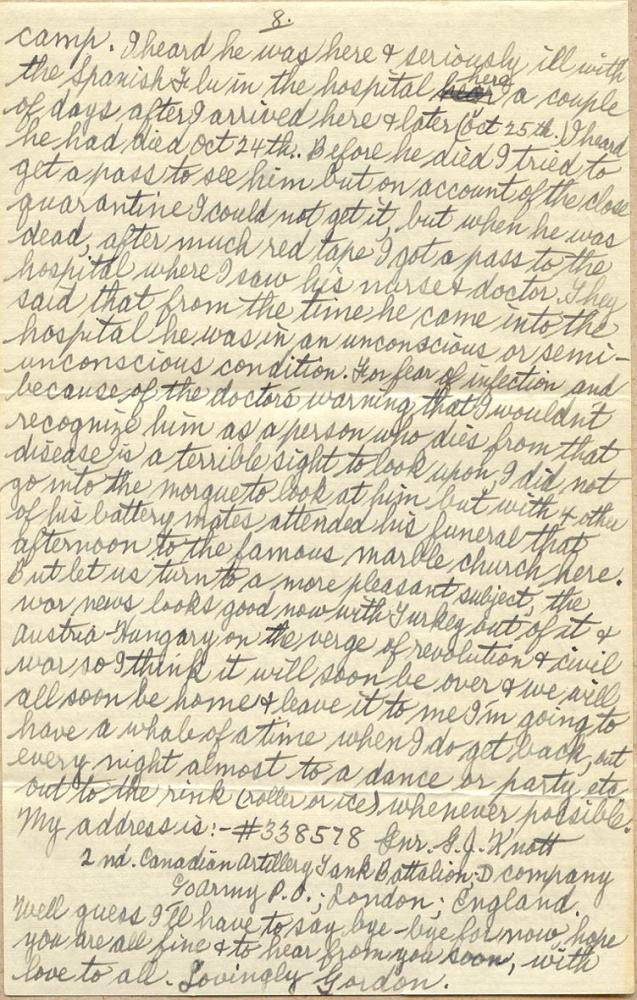 8.
camp. I heard he was here & seriously ill with
the Spanish Flu in the hospital here a couple
of days after I arrived here & later (Oct 25th.) I heard
he had died Oct 24th.. Before he died I tried to
get a pass to see him but on account of the close
quarantine I could not get it, but when he was
dead, after much red tape I got a pass to the
hospital where I saw his nurse & doctor. They
said that from the time he came into the
hospital he was in an unconscious or semi-
unconscious condition. For fear of infection and
because of the doctors warning that I wouldn't
recognize him as a person who dies from that
disease is a terrible sight to look upon, I did not
go into the morgue to look at him but with 4 other
of his battery mates attended his funeral that
afternoon to the famous marble church here.
But let us turn to a more pleasant subject, the
war news looks good now with Turkey out of it &
Austria-Hungary on the verge of revolution & civil
war so I think it will soon be over & we will
all soon be home & leave it to me I'm going to
have a whale of a time when I do get back, out
every night almost to a dance or party etc
out to the rink (roller or ice) whenever possible.
My address is:- #338578 Gnr. G.J. Knott
2nd. Canadian Artillery Tank Battalion-D company
℅ Army P.O.; London; England.
Well guess I'll have to say bye-bye for now, hope
you are all fine & to hear from you soon, with
love to all. Lovingly Gordon.